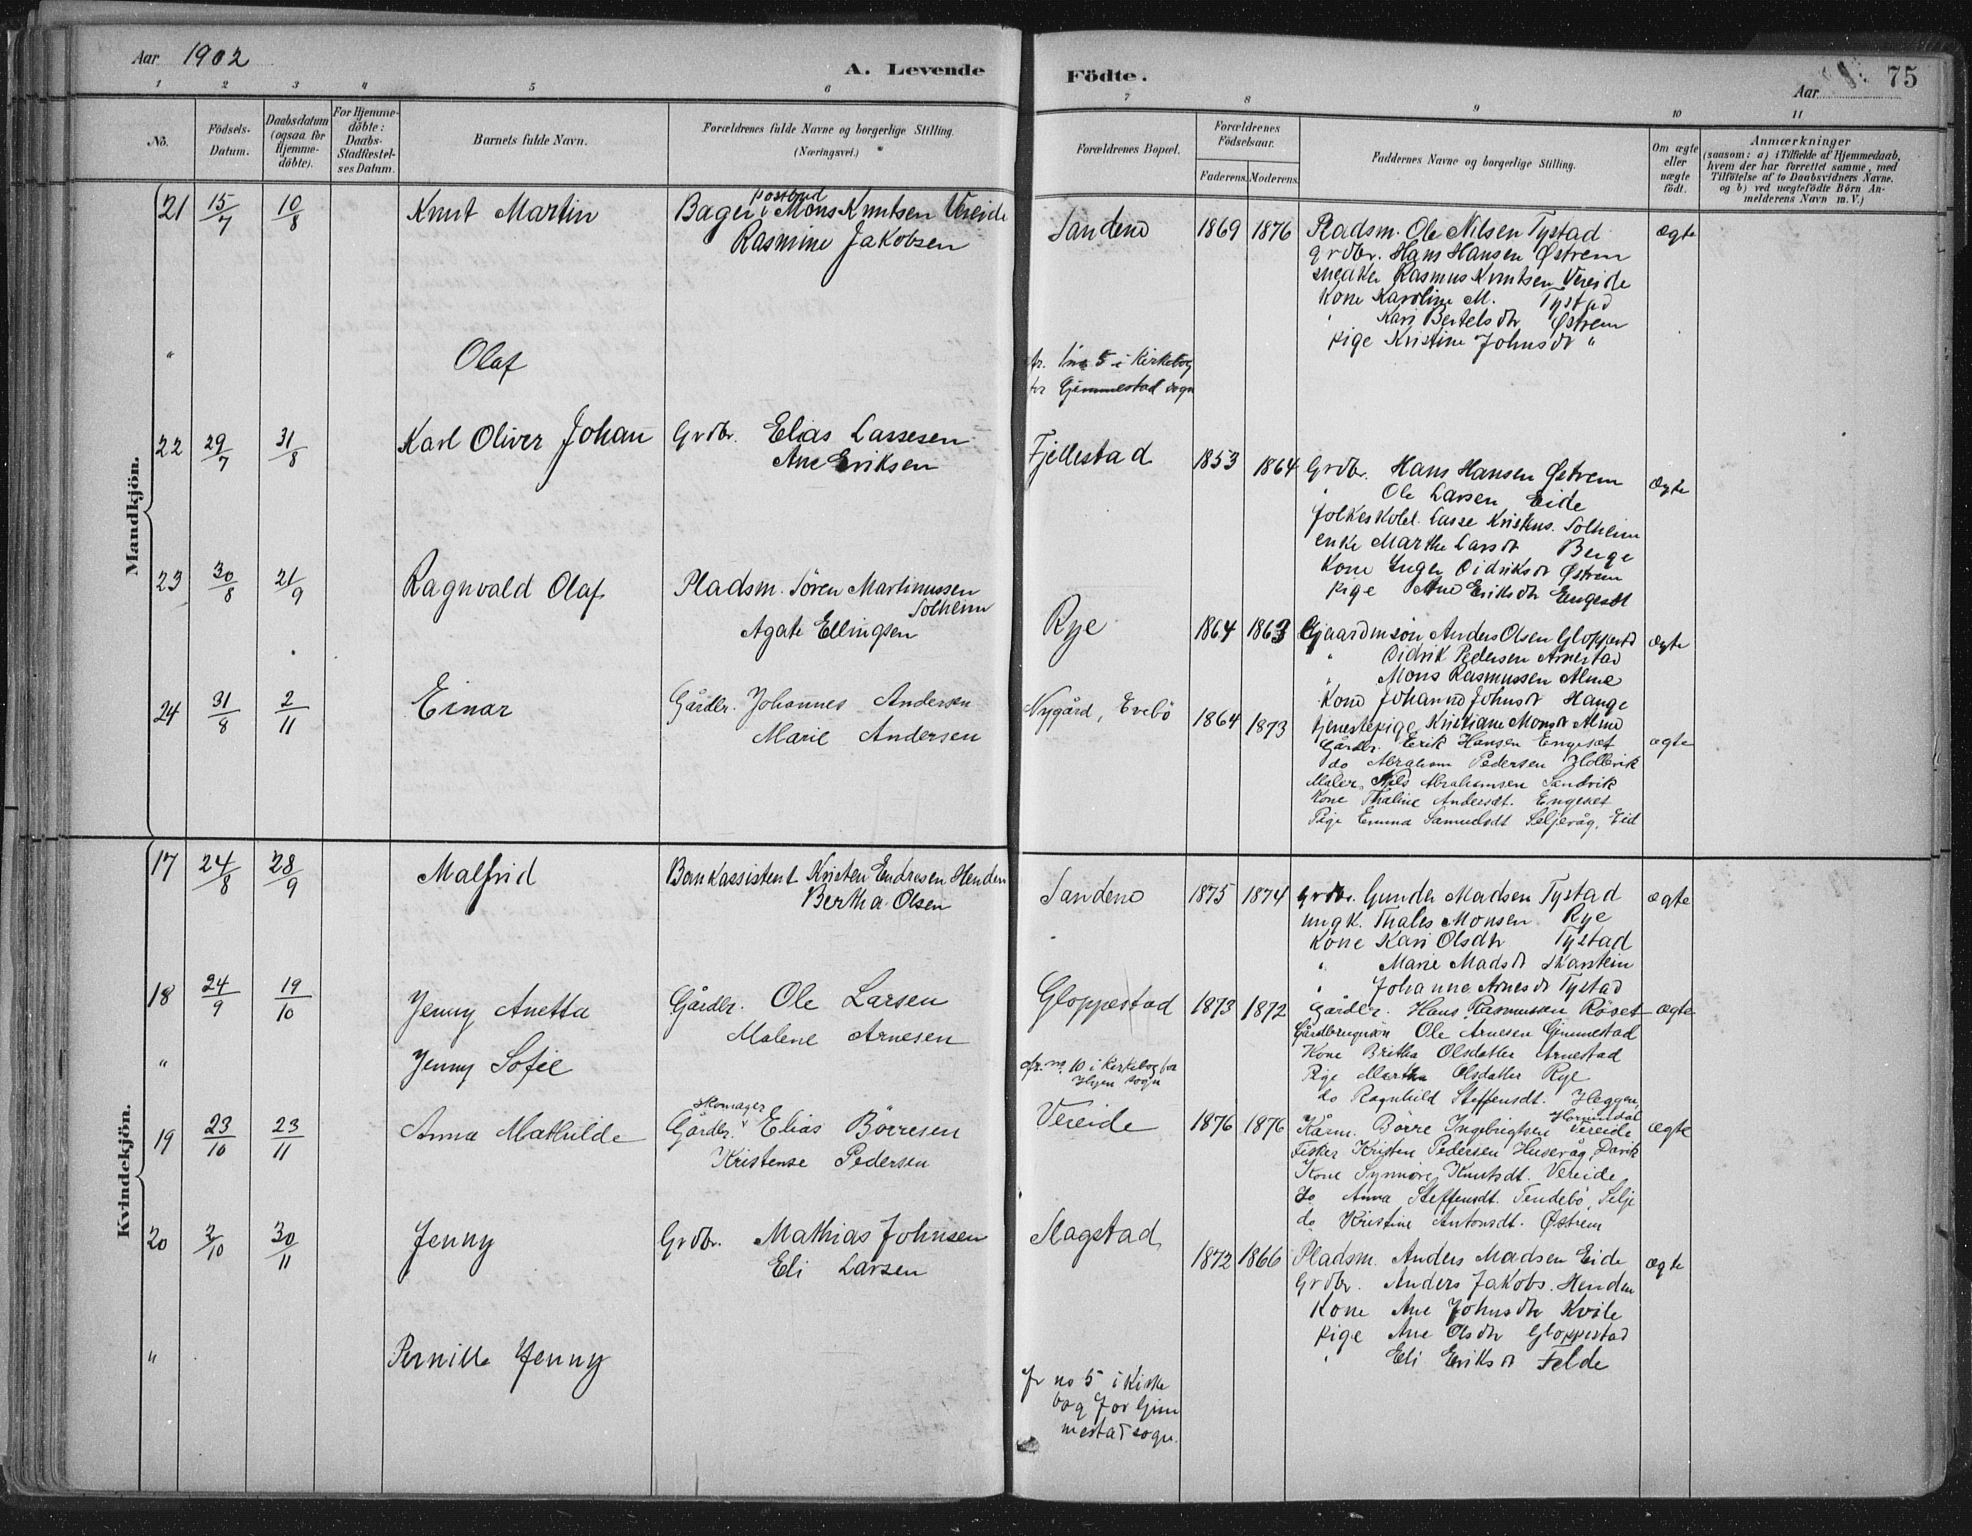 Aar 1902
A. Levende
Födte.
Aar
75
1 2 3 4 5 6 7 8 9 10 11
No.
Födsels-Datum.
Daabsdatum (ogsaa for Hjemme-döbte).
For Hjemme-döbte: Daabs-Stadfæstel-ses Datum.
Barnets fulde Navn.
Forældrenes fulde Navne og borgerlige Stilling. (Næringsvei.)
Forældrenes Bopæl.
Forældrenes Födselsaar.
Faderens. Moderens.
Faddernes Navne og borgerlige Stilling.
Om ægte eller uægte födt.
Anmærkninger
(saasom: a) i Tilfælde af Hjemmedaab,
hvem der har forrettet samme, med
Tilföielse af to Daabsvidners Navne.
og b) ved uægtefödte Börn An-
melderens Navn m. V.)
Mandkjön.
21 15/7 10/8 Knut Martin
postbud
Bager Mons Knutsen Vereide
Rasmine Jakobsen
Sandene 1869 1876
Pladsm. Ole Nilsen Tystad
grdbr. Hans Hansen Østrem
Rasmus Knutsen Vereide
Kone Karoline M. Tystad
" Kari Bertelsdtr Østrem
pige Kristine Johnsdr "
ægte
" Olaf
fr. no 5 i Kirkebog
for Gjemmestad sogn
22 29/7 31/8 Karl Oliver Johan
Grdbr. Elias Lassesen
Ane Eriksen
Fjellestad 1853 1864
Grdbr. Hans Hansen Østrem
" Ole Larsen Eide
folkeskolel. Lasse Kristens. Solheim
enke Marthe Larsdr Berge
Kone Inger Didriksdr Østrem
pige Ane Eriksdr Engeset
ægte
23 30/8 21/9 Ragnvald Olaf
Pladsm. Sören Martinussen
Solheim
Agate Ellingsen
Rye 1864 1863
Gaardmsön Anders Olsen Gloppestd
" Didrik Pedersen Arnestad
" Mons Rasmussen Alme
Kone Johanne Johnsdr Hauge
tjenestepige Kristiane Monsdr Alme
ægte
24 31/8 2/11 Einar
Gårdbr. Johannes Andersen
Marie Andersen
Nygård, Evebö 1864 1873
Gårdbr. Erik Hansen Engeset
do Abraham Pedersen Hollevik
Maler Nils Abrahamsen Sandvik
Kone Thaline Andersdt. Engeset
Pige Emma Samuelsdt Seljevåg, Eid
ægte
Kvindekjön.
17 24/8 28/9 Malfrid
Bankassistent Kristen Endresen Henden
Bertha Olsen
Sandene 1875 1874
Grdbr. Gunder Madsen Tystad
ungk. Thales Monsen Rye
Kone Kari Olsdtr Tystad
" Marie Madsdr Skarstein
" Johanne Arnesdr Tystad
ægte
18 24/9 19/10 Jenny Anetta
Gårdbr. Ole Larsen
Malene Arnesen
Gloppestad 1873 1872
Gårdbr. Hans Rasmussen Röset
Ole Arnesen Gimmestad
Kone Britha Olsdatter Arnestad
Pige Martha Olsdatter Rye
do Ragnhild Steffensdt. Heggen,
Hornindal
ægte
" Jenny Sofie
fr. no. 10 i Kirkebog for
Hyen sogn
19 23/10 23/11 Anna Mathilde
Skomager
Gårdbr. Elias Börresen
Kristense Pedersen
Vereide 1876 1876
Kårm. Börre Ingebrigtsen Vereide
Fisker Kristen Pedersen Husevåg, Davik
Kone Synnöve Knutsdt. Vereide
do Anna Steffensdt. Tendebö, Selje
do Kristine Antonsdt. Østrem
ægte
20 2/10 30/11 Jenny
Grdbr. Mathias Johnsen
Eli Larsen
Slagstad 1872 1866
Pladsm. Anders Madsen Eide
Grdbr. Anders Jakobs. Henden
Kone Ane Johnsdtr Kvile
pige Ane Olsdtr Gloppestad
" Eli Eriksdr Felde
ægte
" Pernille Jenny
fr no 5 i Kirke
bog for Gim
mestad sogn.